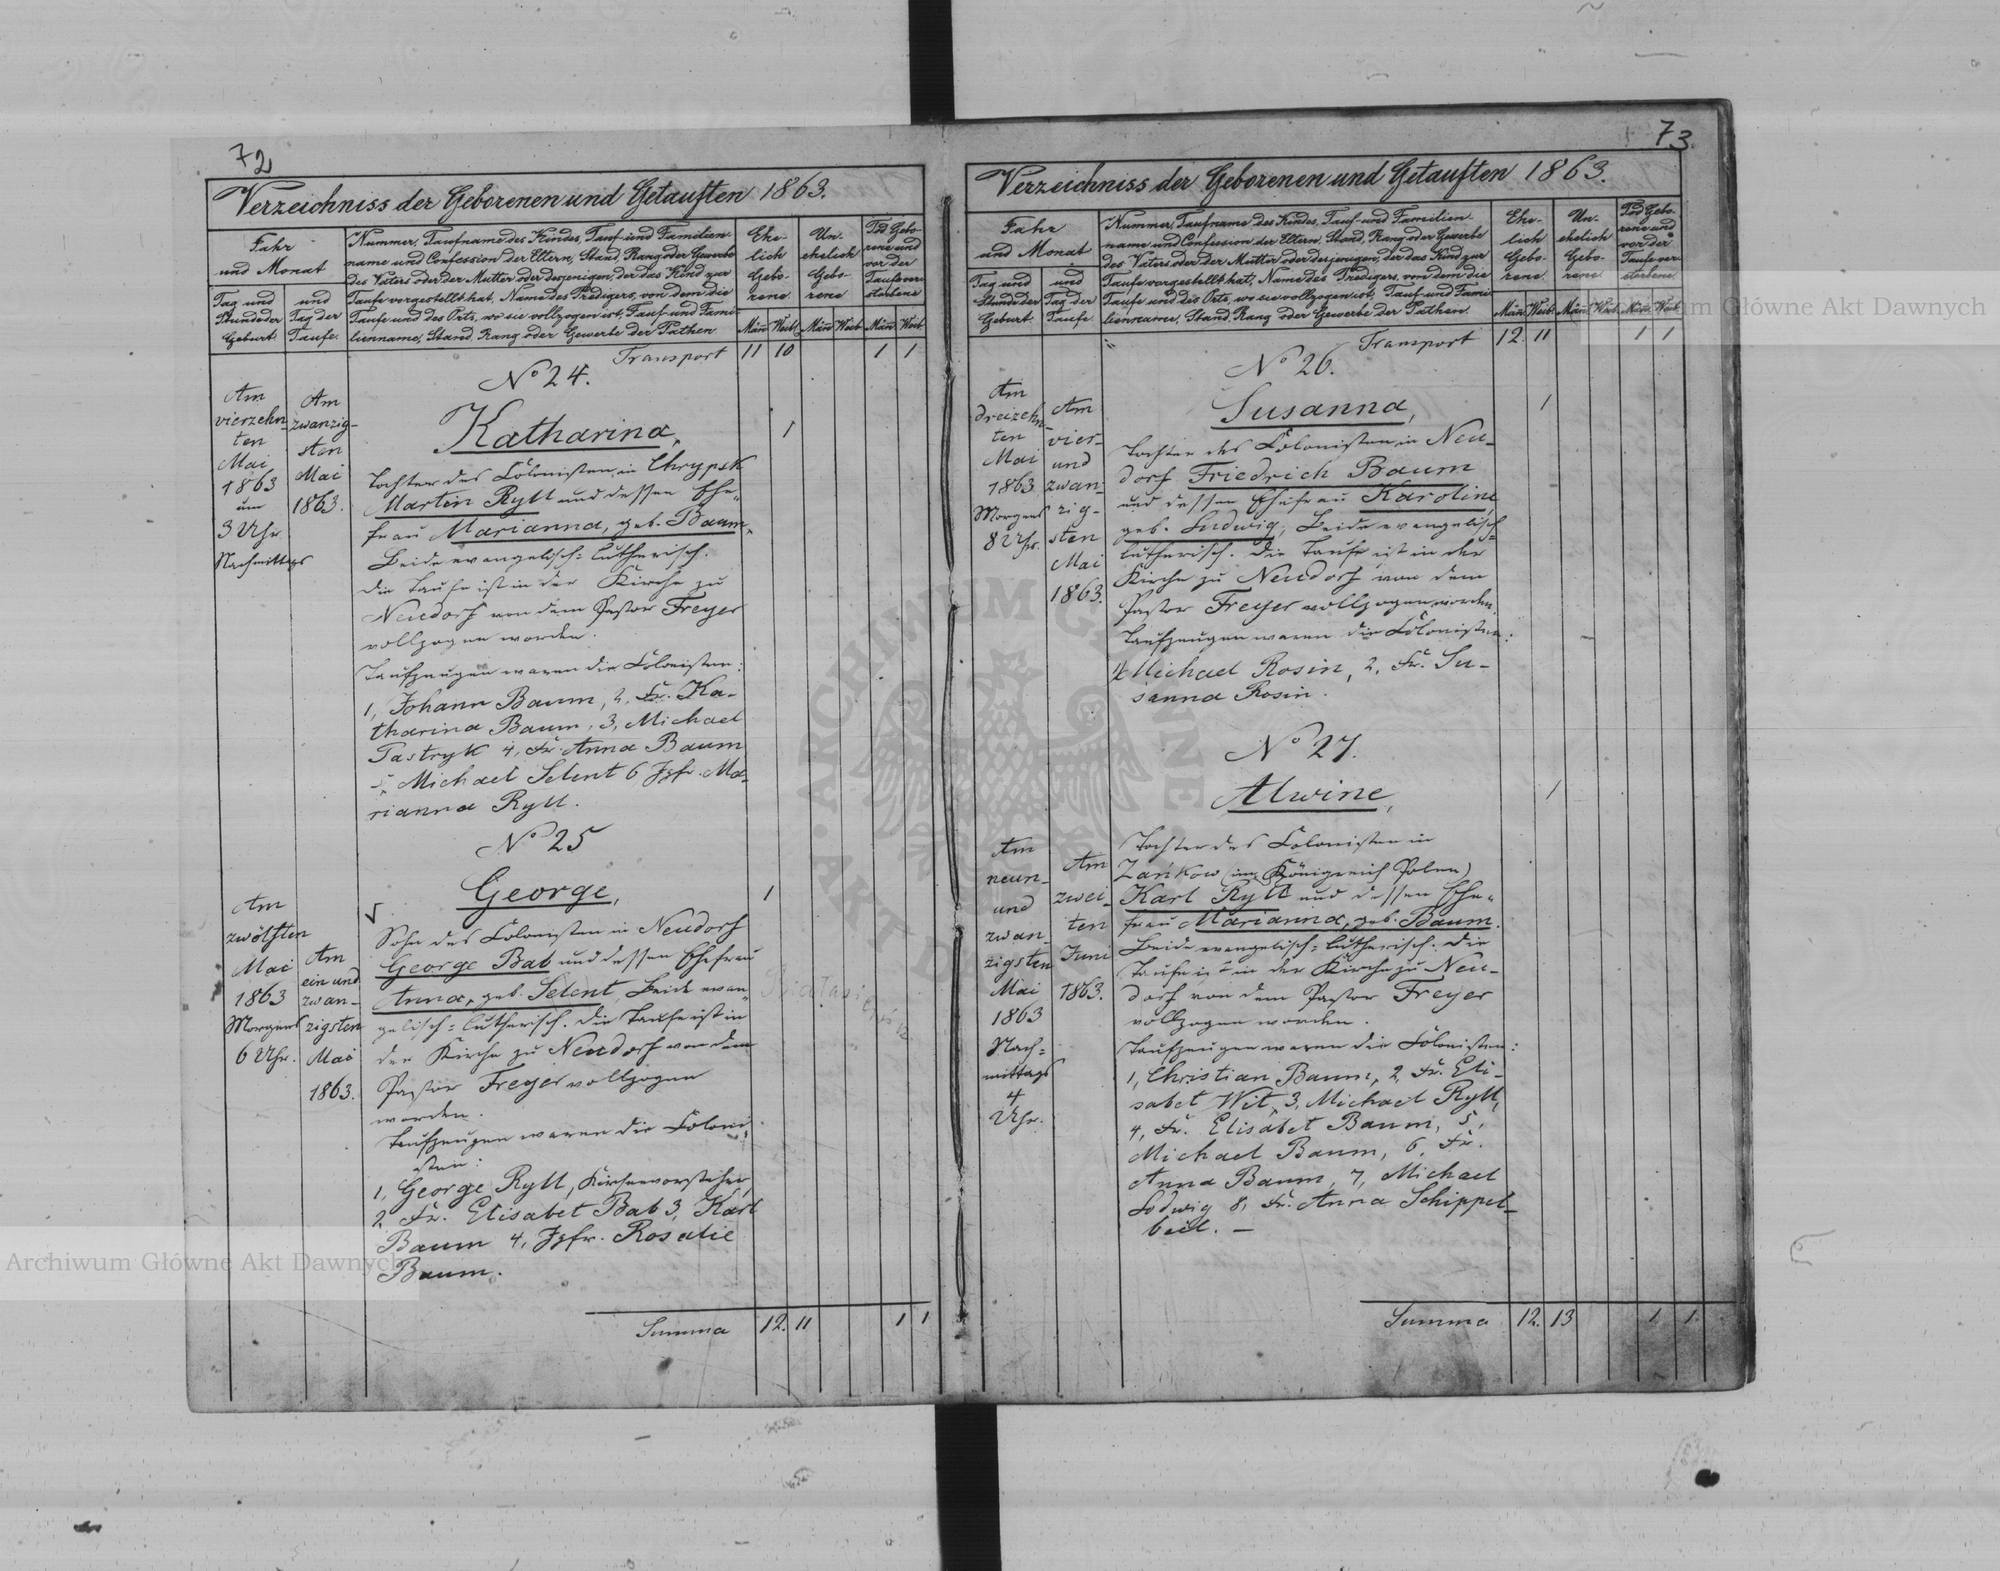 72
Verzeichniss der Geborenen und Getauften 1863.
Jahr
und Monat
Tag und
Stunde der
Geburt.
und
Tag der
Taufe.
Nummer, Taufname des Kindes, Tauf- und Familien-
name und Confession der Eltern, Stand, Rang oder Gewerbe
des Vaters oder der Mutter oder desjenigen, der das Kind zur
Taufe vorgestellt hat, Name des Predigers, von dem die
Taufe und des Orts, wo sie vollzogen ist, Tauf- und Fami-
lienname, Stand, Rang oder Gewerbe der Pathen.
Ehe-
lich
Gebo-
rene
Un-
ehelich
Gebo-
rene
Tod Gebo-
rene und
vor der
Taufe ver-
storbene
Män. Weib. Män. Weib. Män. Weib.
Transport 11 10 1 1
Am
vierzehn-
ten
Mai
1863
um
3 Uhr
Nachmittags
Am
zwanzig-
sten
Mai
1863.
No 24.
Katharina, 1
Tochter des Colonisten in Chrypsk
Martin Ryll und dessen Ehe-
frau Marianna, geb. Baum,
Beide evangelisch-lutherisch.
Die Taufe ist in der Kirche zu
Neudorf von dem Pastor Freyer
vollzogen worden.
Taufzeugen waren die Colonisten:
1, Johann Baum, 2, Fr. Ka-
tharina Baum, 3, Michael
Pastryk 4, Fr. Anna Baum
5, Michael Selent 6 Jgfr. Ma-
rianna Ryll.
Am
zwölften
Mai
1863
Morgens
6 Uhr.
Am
ein und
zwan-
zigsten
Mai
1863.
No 25
George, 1
Sohn des Colonisten in Neudorf
George Bab und dessen Ehefrau
Anna, geb. Selent, Beide evan-
gelisch-lutherisch. Die Taufe ist in
der Kirche zu Neudorf von dem
Pastor Freyer vollzogen
worden.
Taufzeugen waren die Coloni-
sten:
1, George Ryll, Kirchenvorsteher,
2, Fr. Elisabet Bab 3, Karl
Baum 4, Jgfr. Rosalie
Baum.
Summa 12. 11 1 1
73.
Verzeichniss der Geborenen und Getauften 1863.
Jahr
und Monat
Tag und
Stunde der
Geburt.
und
Tag der
Taufe
Nummer, Taufname des Kindes, Tauf- und Familien-
name und Confession der Eltern, Stand, Rang oder Gewerbe
des Vaters oder der Mutter oder desjenigen, der das Kind zur
Taufe vorgestellt hat, Name des Predigers, von dem die
Taufe und des Orts, wo sie vollzogen ist, Tauf- und Fami-
lienname, Stand, Rang oder Gewerbe der Pathen.
Ehe-
lich
Gebo-
rene
Un-
ehelich
Gebo-
rene
Tod Gebo-
rene und
vor der
Taufe ver-
storbene
Män. Weib. Män. Weib. Män. Weib.
Transport 12. 11 1 1
Am
dreizehn-
ten
Mai
1863
Morgens
8 Uhr.
Am
vier-
und
zwan-
zig-
sten
Mai
1863.
No 26.
Susanna, 1
Tochter des Colonisten in Neu-
dorf Friedrich Baum
und dessen Ehefrau Karoline,
geb. Ludwig, Beide evangelisch-
lutherisch. Die Taufe ist in der
Kirche zu Neudorf von dem
Pastor Freyer vollzogen worden.
Taufzeugen waren die Colonisten:
1, Michael Rosin, 2, Fr. Su-
sanna Rosin.
Am
neun-
und
zwan-
zigsten
Mai
1863
Nach-
mittags
4
Uhr.
Am
zwei-
ten
Juni
1863.
No 27.
Alwine, 1
Tochter des Colonisten in
Zańkow (im Königreich Polen)
Karl Ryll und dessen Ehe-
frau Marianna, geb. Baum.
Beide evangelisch-lutherisch. Die
Taufe ist in der Kirche zu Neu-
dorf von dem Pastor Freyer
vollzogen worden.
Taufzeugen waren die Colonisten:
1, Christian Baum, 2, Fr. Eli-
sabet Wit, 3, Michael Ryll,
4, Fr. Elisabet Baum, 5,
Michael Baum, 6, Fr.
Anna Baum, 7, Michael
Lodwig 8, Fr. Anna Schippel-
beil. —
Summa 12. 13 1 1.
Archiwum Główne Akt Dawnych
Główne Akt Dawnych